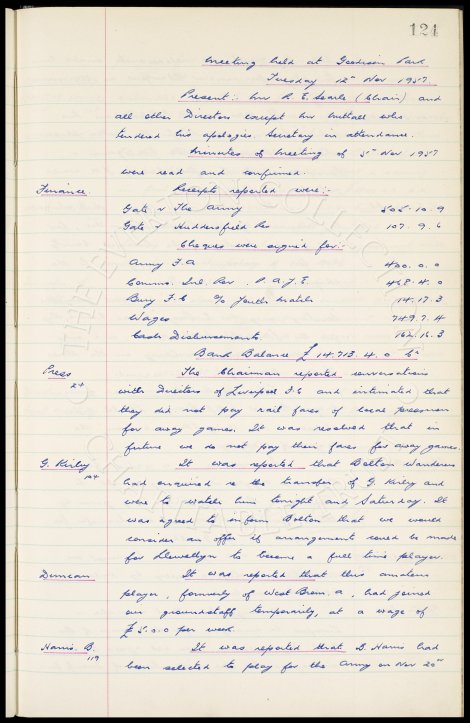 124
Meeting held at Goodison Park
Tuesday 12th Nov 1957
Present:- Mr R. E. Searle (Chair) and
all other Directors except Mr Nuttall who
tendered his apologies. Secretary in attendance.
Minutes of Meeting of 5th Nov 1957
were read and confirmed.
Finance. Receipts reported were:-
Gate v The Army 505. 10. 9
Gate v Huddersfield Res 107. 9. 6
Cheques were signed for:-
Army F.A 400. 0. 0
Comms. Inl. Rev. P.A.Y.E. 468. 4. 0
Bury F.C % Youth Match 14. 17. 3
Wages 749. 7. 4
Cash Disbursements 16. 3
Bank Balance £ 14,713. 4. 0
Press The Chairman reported conversations
24
with Directors of Liverpool F.C and intimated that
they did not pay rail fares of local pressmen
for away games. It was resolved that in
future we do not pay their fares for away games.
G. Kirby It was reported that Bolton Wanderers
104
had enquired re the transfer of G. Kirby and
were to watch him tonight and Saturday. It
was agreed to inform Bolton that we would
consider an offer if arrangements could be made
for Llewellyn to become a full time player.
Duncan It was reported that this amateur
player, formerly of West Brom. A, had joined
our groundstaff temporarily, at a wage of
£5. 0. 0 per week.
Harris. B. It was reported that B. Harris had
119
been selected to play for the Army on Nov 20th
THE EVERTON COLLECTION